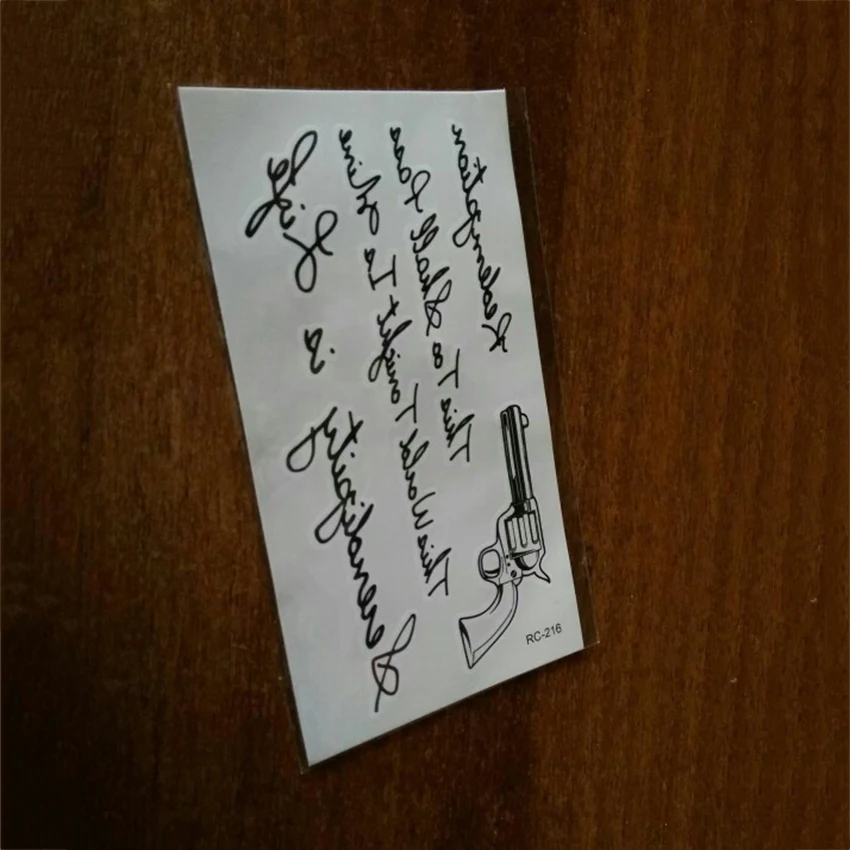 Redemption
This To Shall Pass
This World Tonight Is Mine
Serendipity is Life
RC-216